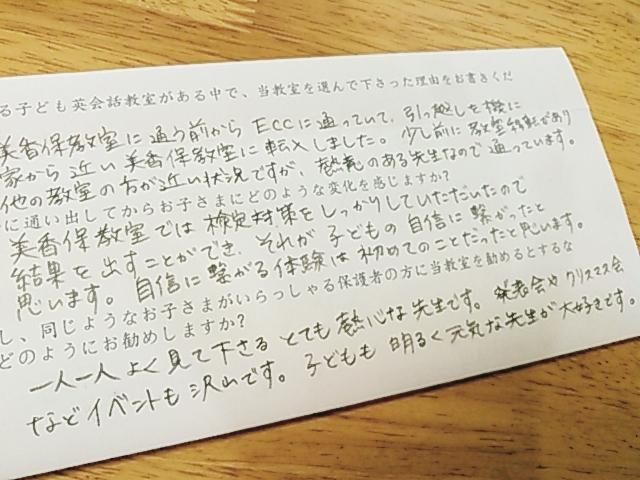 る子ども英会話教室がある中で、当教室を選んで下さった理由をお書きくだ
美香保教室に通う前からECCに通っていて、引っ越しを機に
家から近い美香保教室に転入しました。少し前に教室移転があり
他の教室の方が近い状況ですが、熱意のある先生なので通っています。
に通い出してからお子さまにどのような変化を感じますか?
美香保教室では検定対策をしっかりしていただいたので
結果を出すことができ、それが子どもの自信に繋がったと
思います。自信に繋がる体験は初めてのことだったと思います。
し、同じようなお子さまがいらっしゃる保護者の方に当教室を勧めるとするな
どのようにお勧めしますか?
一人一人よく見て下さるとても熱心な先生です。発表会やクリスマス会
などイベントも沢山です。子どもも明るく元気な先生が大好きです。